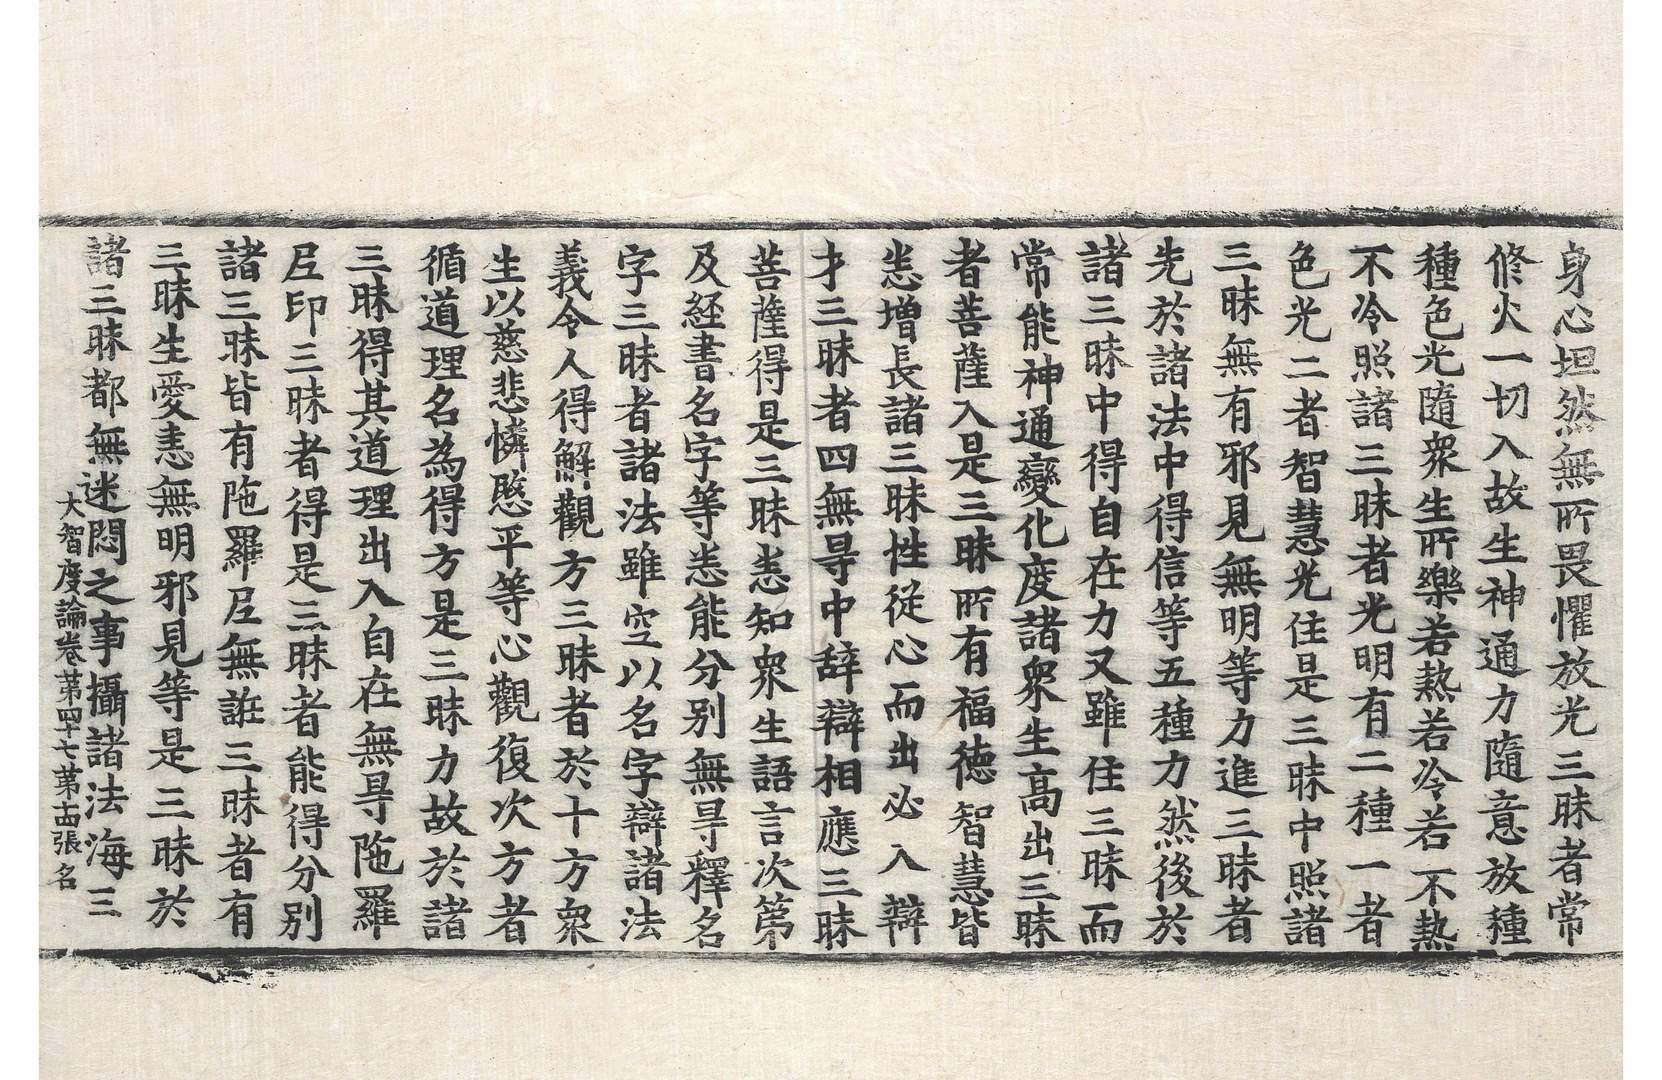 身心坦然無所畏懼放光三昧者常
修火一切入故生神通力隨意放種
種色光隨衆生所樂若熱若冷若不熱
不冷照諸三昧者光明有二種一者
色光二者智慧光住是三昧中照諸
三昧無有邪見無明等力進三昧者
先於諸法中得信等五種力然後於
諸三昧中得自在力又雖住三昧而
常能神通變化度諸衆生高出三昧
者菩薩入是三昧所有福德智慧皆
悉增長諸三昧性從心而出必入辯
才三昧者四無㝵中辞辯相應三昧
菩薩得是三昧悉知衆生語言次第
及経書名字等悉能分別無㝵釋名
字三昧者諸法雖空以名字辯諸法
義令人得解觀方三昧者於十方衆
生以慈悲憐愍平等心觀復次方者
循道理名為得方是三昧力故於諸
三昧得其道理出入自在無㝵陁羅
尼印三昧者得是三昧者能得分別
諸三昧皆有陁羅尼無誑三昧者有
三昧生愛恚無明邪見等是三昧於
諸三昧都無迷悶之事攝諸法海三
大智度論卷第四十七第十四張名